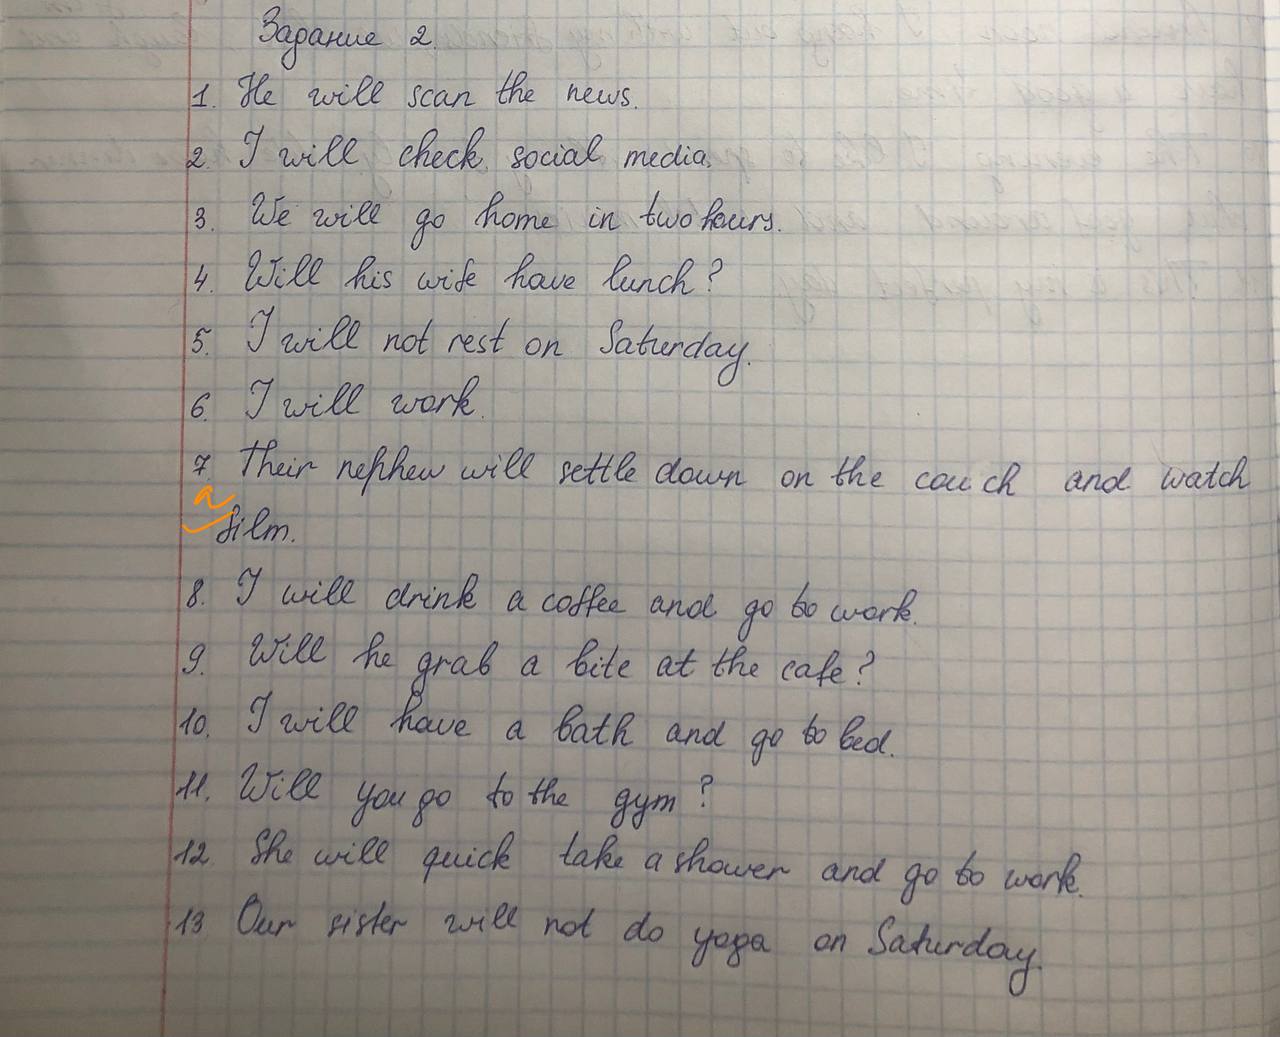 Задание 2.
1. He will scan the news.
2. I will check social media.
3. We will go home in two hours.
4. Will his wife have lunch?
5. I will not rest on Saturday.
6. I will work.
7. Their nephew will settle down on the couch and watch
a
film.
8. I will drink a coffee and go to work.
9. Will he grab a bite at the cafe?
10. I will have a bath and go to bed.
11. Will you go to the gym?
12. She will quick take a shower and go to work.
13. Our sister will not do yoga on Saturday.